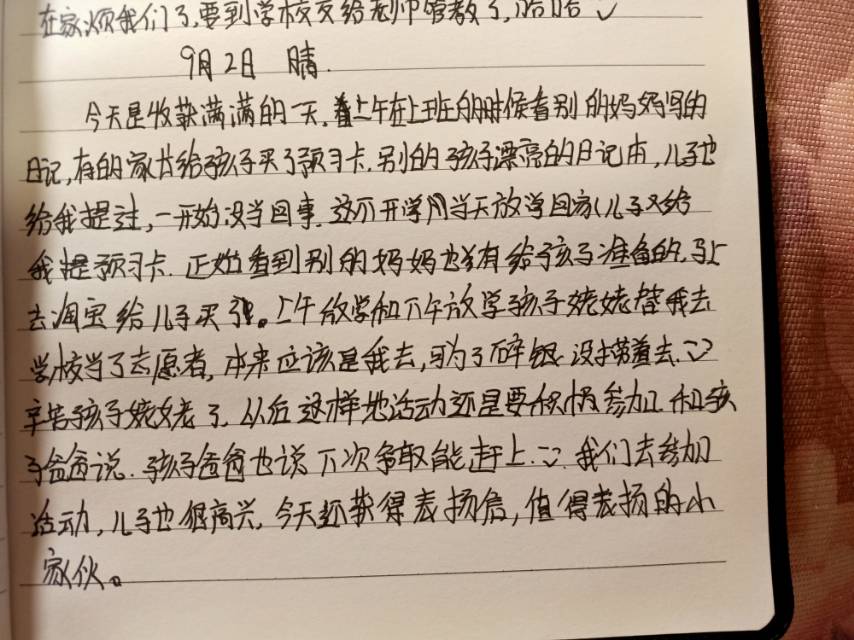 在家烦我们了,要到学校交给老师管教了,哈哈
9月2日 晴.
今天是收获满满的一天.着上午在上班的时候看别的妈妈写的
日记,有的家长给孩子买了预习卡.别的孩子漂亮的日记本,儿子也
给我提过,一开始没当回事.这不开学当天放学回家儿子又给
我提预习卡.正好看到别的妈妈也有给孩子准备的.马上
去淘宝给儿子买。上午放学和下午放学孩子姥姥替我去
学校当了志愿者,本来应该是我去,可为了碎银没捞着去.
辛苦孩子姥姥了.以后这样地活动还是要积极参加.和孩
子爸爸说.孩子爸爸也说下次争取能赶上.我们去参加
活动,儿子也很高兴.今天还获得表扬信,值得表扬的小
家伙。